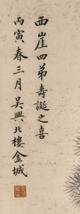 西崖四弟壽誕之喜
丙寅春三月吴興北樓金城